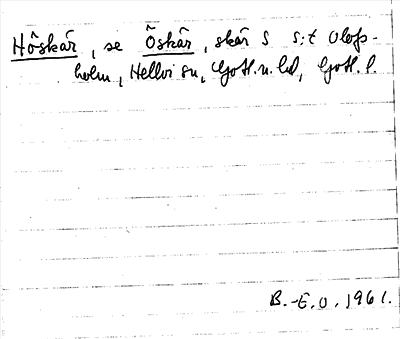 Höskär, se Öskär, skär S s:t Olofs-
holm, Hellvi sn, Gotl. n. hd, Gotl. l.
B.-E. O. 1961.